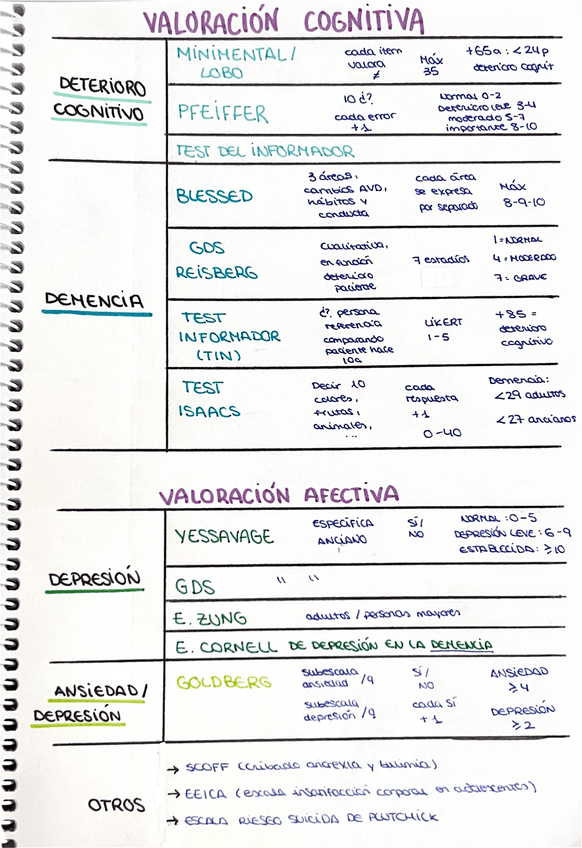 VALORACIÓN COGNITIVA
DETERIORO
COGNITIVO
MINIMENTAL /
LOBO
cada ítem
valora
≠
Máx
35
+65a : <24p
deterioro cognit
PFEIFFER
10 ¿?
cada error
+1
Normal 0-2
Deterioro leve 3-4
moderado 5-7
importante 8-10
TEST DEL INFORMADOR
DEMENCIA
BLESSED
3 áreas,
cambios AVD,
hábitos y
conducta
cada área
se expresa
por separado
MÁX
8-9-10
GDS
REISBERG
Cualitativa,
en función
deterioro
paciente
7 estadíos
1 = NORMAL
4 = MODERADO
7 = GRAVE
TEST
INFORMADOR
(TIN)
¿?. persona
referencia
comparando
paciente hace
10a
LIKERT
1-5
+85 =
deterioro
cognitivo
TEST
ISAACS
Decir 10
colores,
frutas,
animales,
...
cada
respuesta
+1
0-40
Demencia:
<29 adultos
<27 ancianos
VALORACIÓN AFECTIVA
DEPRESIÓN
YESSAVAGE
ESPECÍFICA
ANCIANO
SÍ/
NO
NORMAL : 0-5
DEPRESIÓN LEVE : 6-9
ESTABLECIDA : ≥10
GDS " "
E. ZUNG adultos / personas mayores
E. CORNELL DE DEPRESIÓN EN LA DEMENCIA
ANSIEDAD /
DEPRESIÓN
GOLDBERG
subescala
ansiedad /9
SÍ/
NO
ANSIEDAD
≥4
subescala
depresión /9
cada SÍ
+1
DEPRESIÓN
≥2
OTROS
→ SCOFF (cribado anorexia y bulimia)
→ EEICA (escala insatisfacción corporal en adolescentes)
→ ESCALA RIESGO SUICIDA DE PLUTCHICK